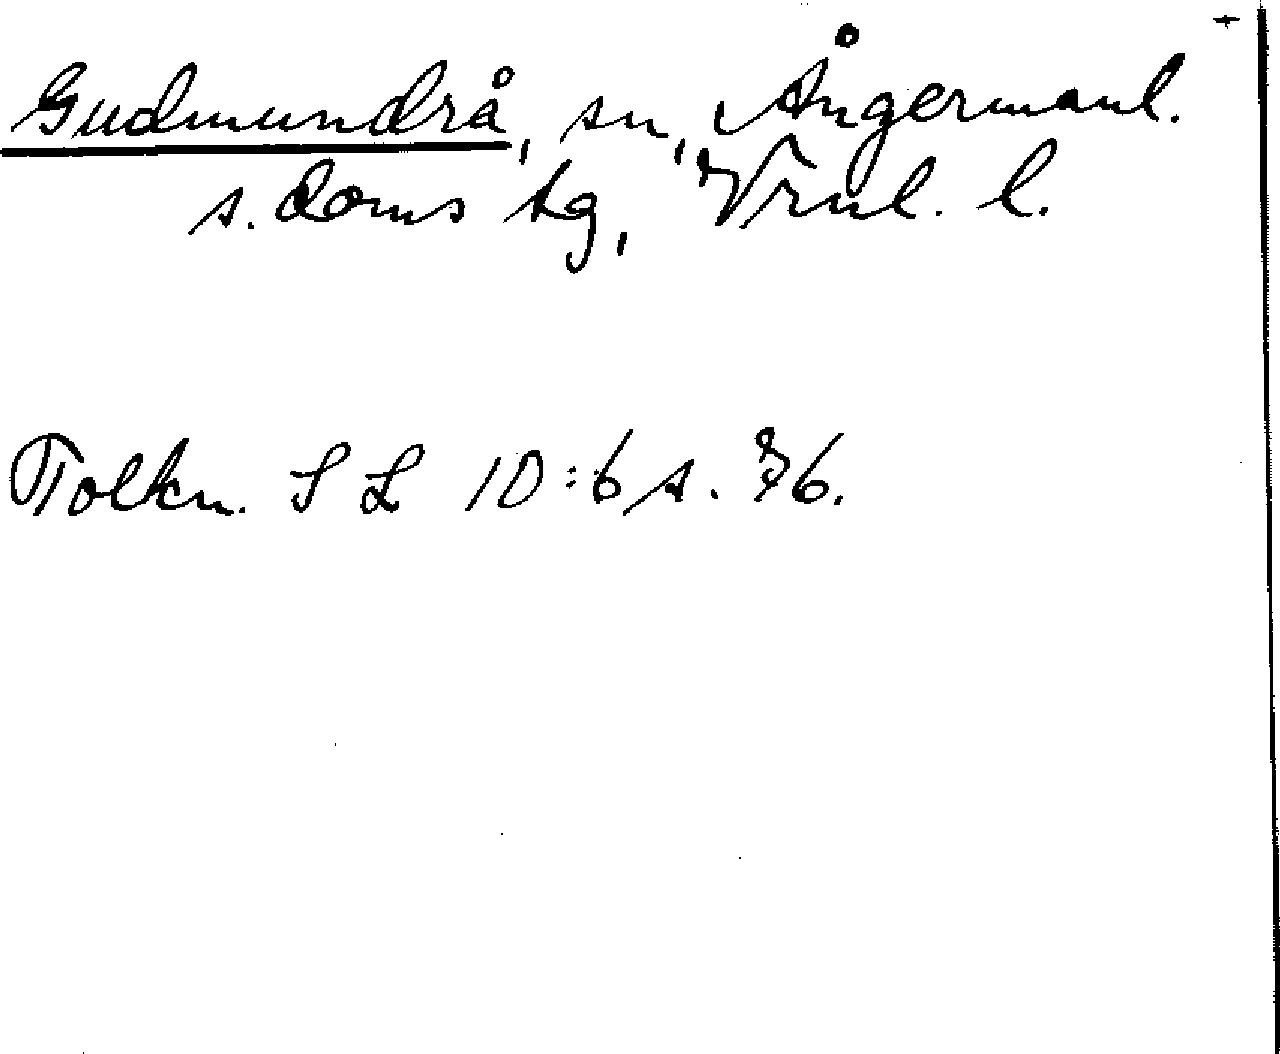 Gudmundrå, sn, Ångermanl.
s. doms tg, Vrnl. l.
Tolkn. SL 10:6 s. 36.